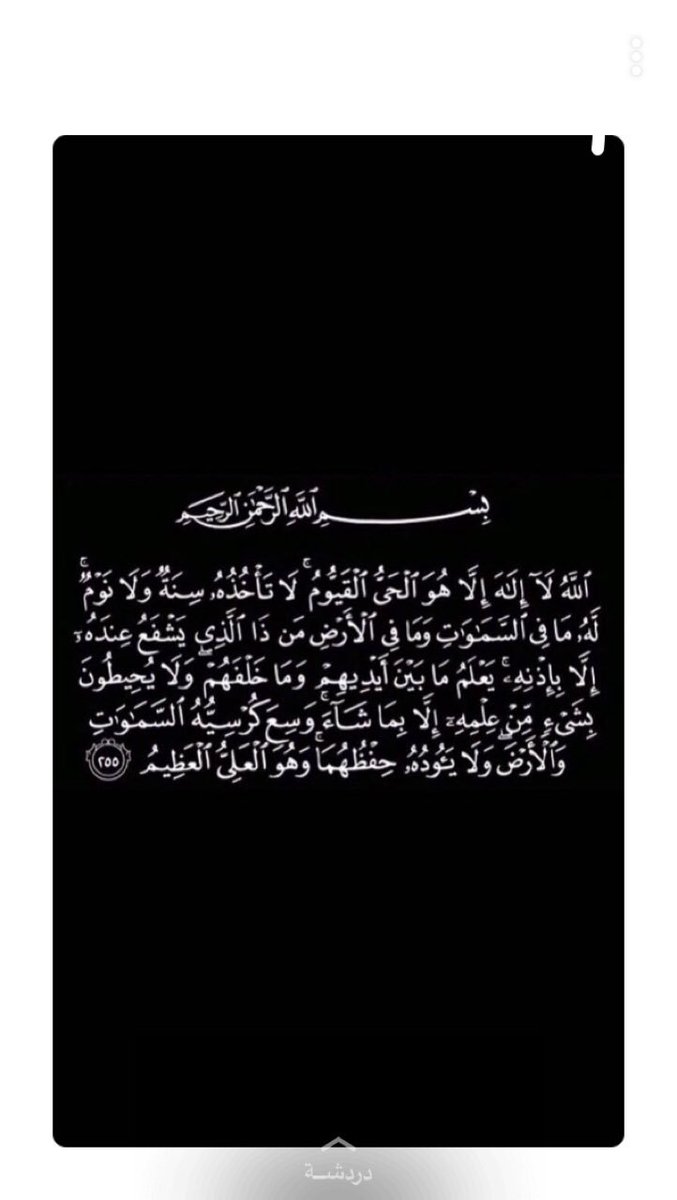 بِسْمِ اللَّهِ الرَّحْمَٰنِ الرَّحِيمِ
اللَّهُ لَآ إِلَٰهَ إِلَّا هُوَ الْحَىُّ الْقَيُّومُ ۚ لَا تَأْخُذُهُۥ سِنَةٌ وَلَا نَوْمٌ ۚ
لَّهُۥ مَا فِى السَّمَٰوَٰتِ وَمَا فِى الْأَرْضِ ۗ مَن ذَا الَّذِى يَشْفَعُ عِندَهُۥٓ
إِلَّا بِإِذْنِهِۦ ۚ يَعْلَمُ مَا بَيْنَ أَيْدِيهِمْ وَمَا خَلْفَهُمْ ۖ وَلَا يُحِيطُونَ
بِشَىْءٍ مِّنْ عِلْمِهِۦٓ إِلَّا بِمَا شَآءَ ۚ وَسِعَ كُرْسِيُّهُ السَّمَٰوَٰتِ
وَالْأَرْضَ ۖ وَلَا يَـُٔودُهُۥ حِفْظُهُمَا ۚ وَهُوَ الْعَلِىُّ الْعَظِيمُ ٢٥٥
دردشــة